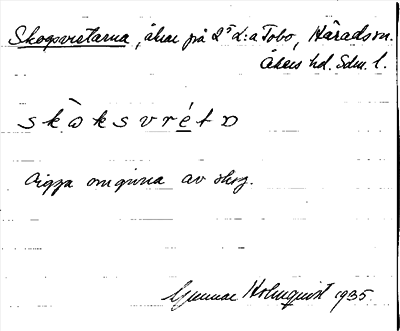 Skogsvretarna, åkrar på 2 d:a Tobo, Häradsm.
Åkers hd. Sdm. l.
skòksvrétɒ
Ligga omgivna av skog.
Gunnar Holmquist 1935